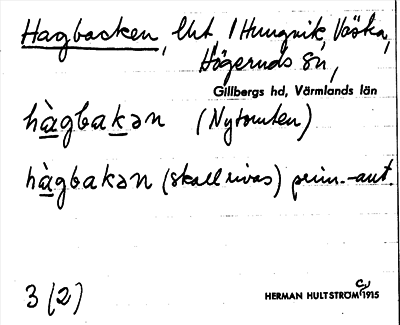 Hagbacken, lht, 1 Hungvik, Västra,
Högeruds sn,
Gillbergs hd, Värmlands län
hàgbakən (Nytomten)
hàgbakən (skall rivas) prim.-aut.
3 (2)
HERMAN HULTSTRÖM 1915